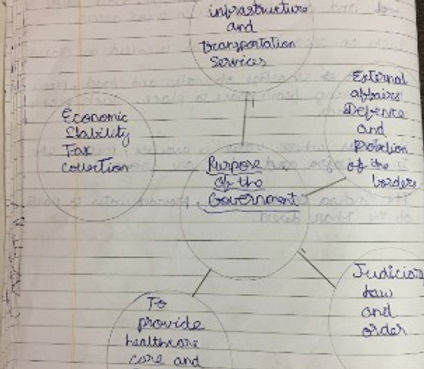 infrastructure
and
Transportation
Services
External
affairs
Defence
and
of the
borders
Economic
Stability
Tax
collection
Purpose
of the
Government
Judiciary
law
and
order
To
provide
healthcare
care and